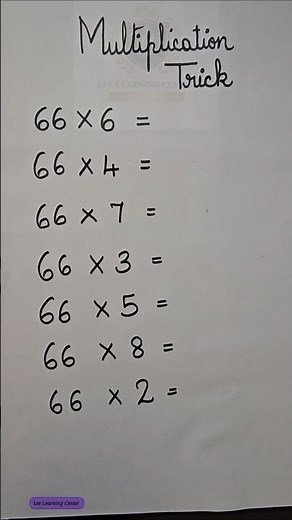 Multiplication
Trick
66 × 6 =
66 × 4 =
66 × 7 =
66 × 3 =
66 × 5 =
66 × 8 =
66 × 2 =
Lee Learning Center